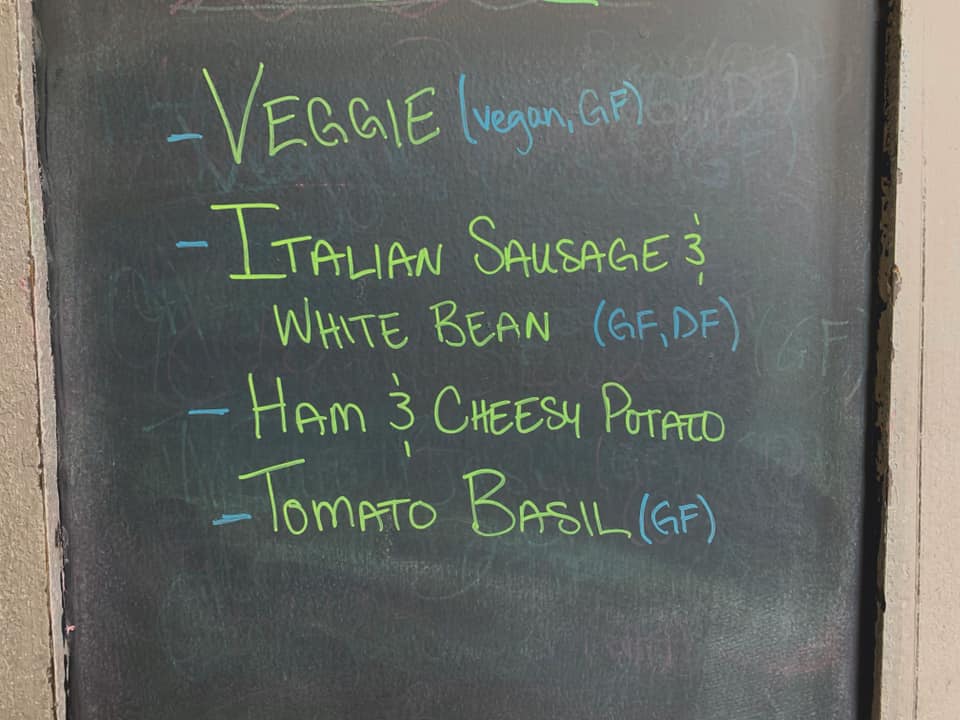 - VEGGIE (vegan, GF)
- ITALIAN SAUSAGE &
WHITE BEAN (GF, DF)
- HAM & CHEESY POTATO
- TOMATO BASIL (GF)